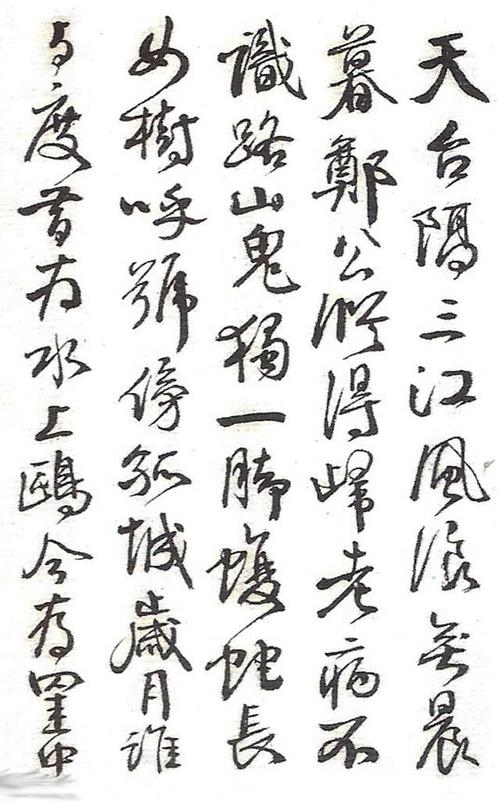 天台隔三江風浪無晨
暮鄭公縱得歸老病不
識路山鬼獨一脚蝮蛇長
如樹呼號傍孤城歲月誰
与度昔為水上鷗今為罝中